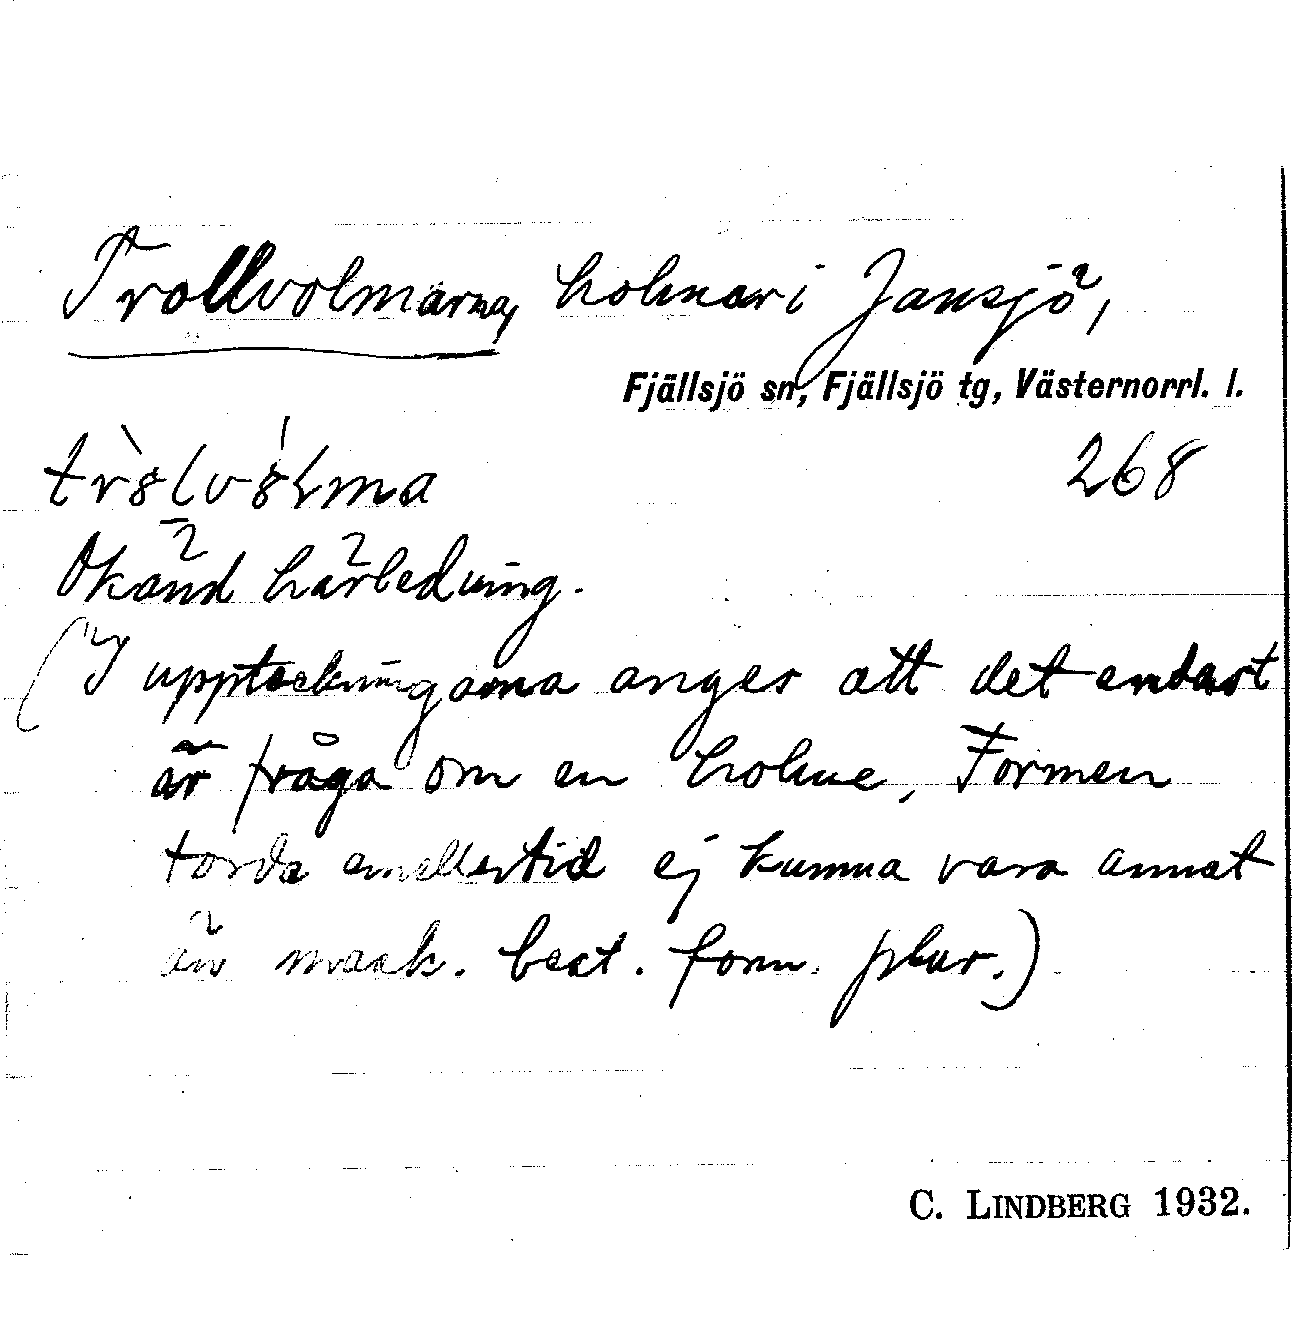 Trollvolmarna, holmar i Jansjö,
Fjällsjö sn, Fjällsjö tg, Västernorrl. l.
268
Okänd härledning.
(I uppteckningarna anges att det endast
är fråga om en holme, Formen
torde emellertid ej kunna vara annat
än mask. best. form. plur.)
C. LINDBERG 1932.